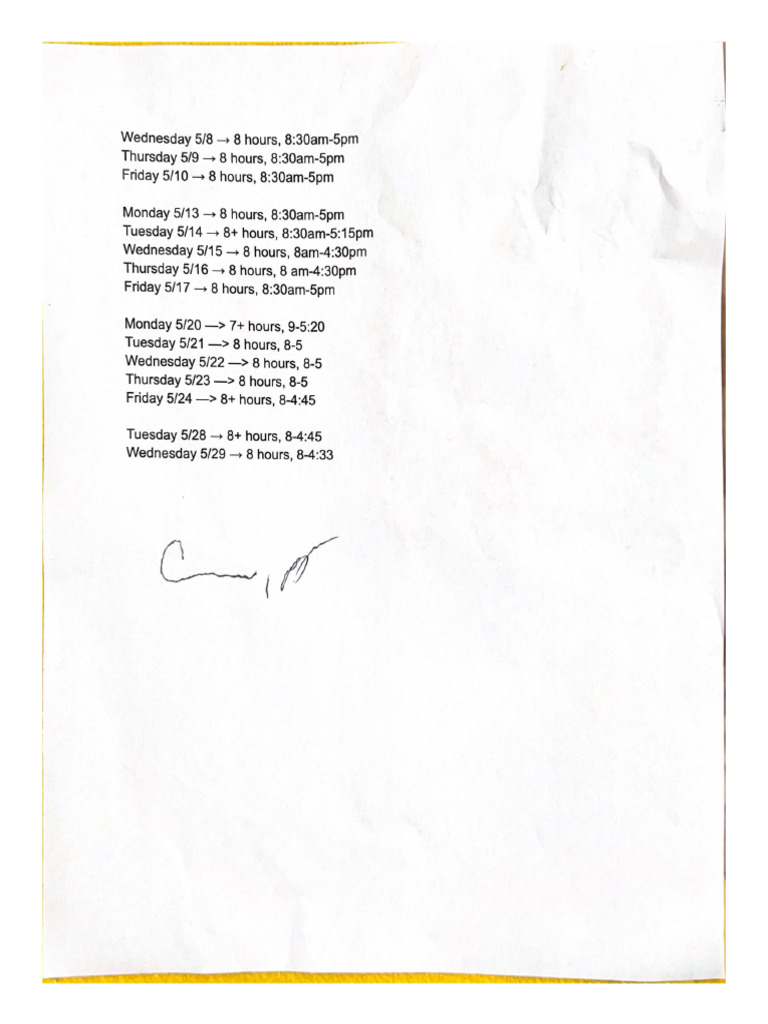 Wednesday 5/8 → 8 hours, 8:30am-5pm
Thursday 5/9 → 8 hours, 8:30am-5pm
Friday 5/10 → 8 hours, 8:30am-5pm
Monday 5/13 → 8 hours, 8:30am-5pm
Tuesday 5/14 → 8+ hours, 8:30am-5:15pm
Wednesday 5/15 → 8 hours, 8am-4:30pm
Thursday 5/16 → 8 hours, 8 am-4:30pm
Friday 5/17 → 8 hours, 8:30am-5pm
Monday 5/20 —> 7+ hours, 9-5:20
Tuesday 5/21 —> 8 hours, 8-5
Wednesday 5/22 —> 8 hours, 8-5
Thursday 5/23 —> 8 hours, 8-5
Friday 5/24 —> 8+ hours, 8-4:45
Tuesday 5/28 → 8+ hours, 8-4:45
Wednesday 5/29 → 8 hours, 8-4:33